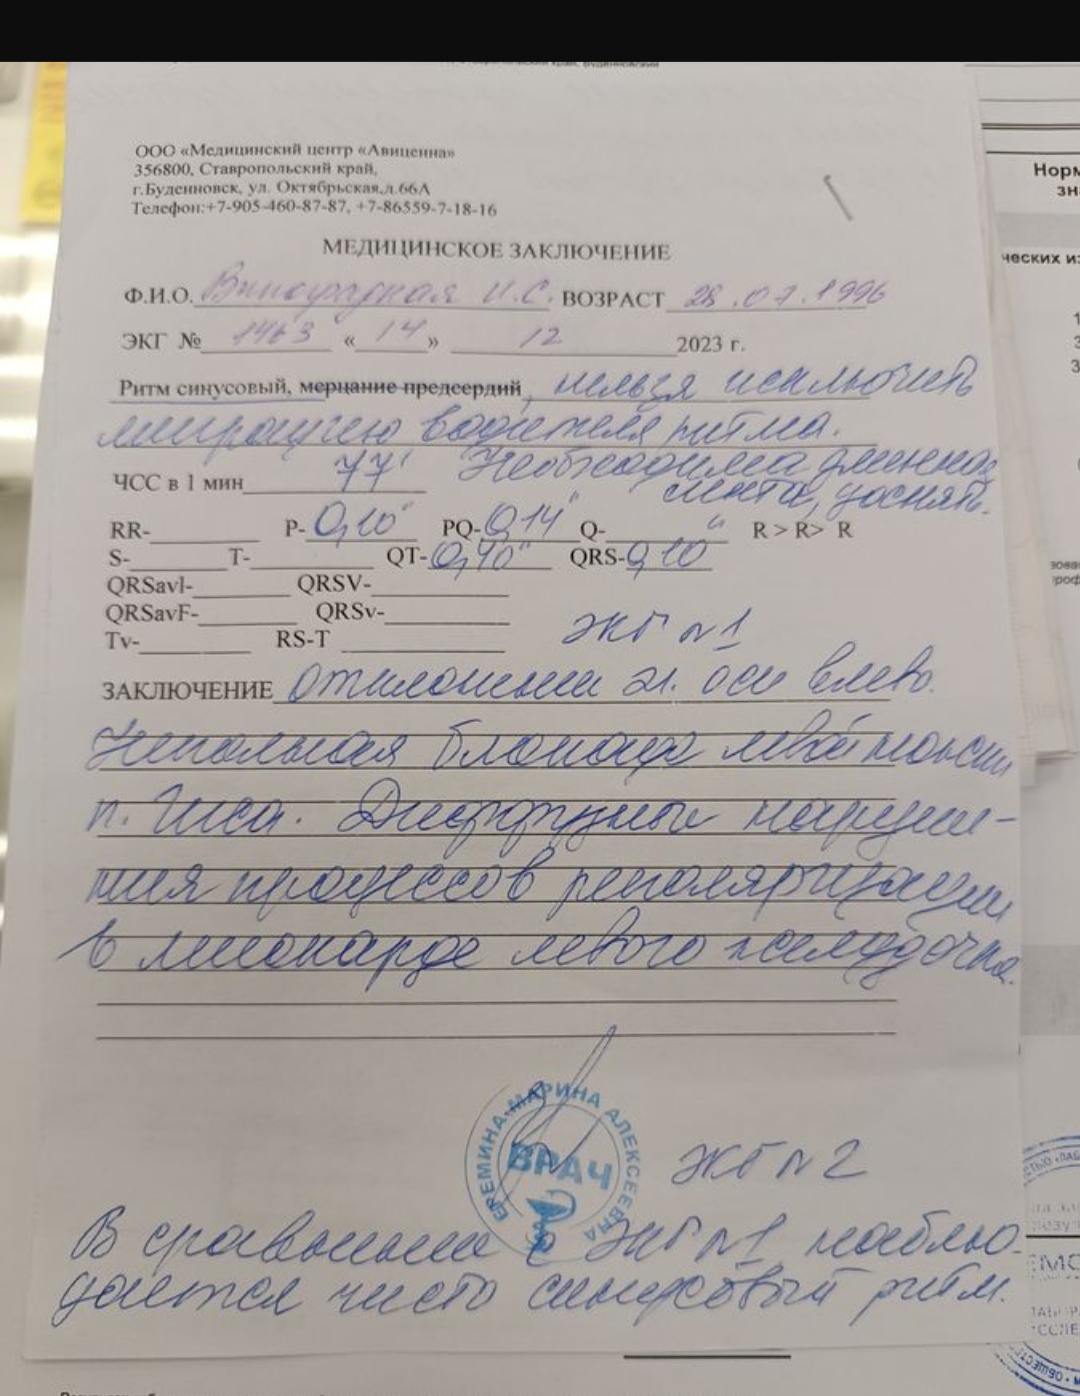 ООО «Медицинский центр «Авиценна»
356800, Ставропольский край,
г.Буденновск, ул. Октябрьская,д.66А
Телефон:+7-905-460-87-87, +7-86559-7-18-16
МЕДИЦИНСКОЕ ЗАКЛЮЧЕНИЕ
Ф.И.О. Виноградная И.С. ВОЗРАСТ 28.07.1996
ЭКГ № 1463 «14» 12 2023 г.
Ритм синусовый, мерцание предсердий, нельзя исключить
миграцию водителя ритма.
ЧСС в 1 мин 77' Необходима длинная
лента, доснять.
RR- P-0,10" PQ-0,14" Q- " R > R> R
S- T- QT-0,40" QRS-0,10
QRSavl- QRSV-
QRSavF- QRSv-
Tv- RS-T ЭКГ №1
ЗАКЛЮЧЕНИЕ Отклонение эл. оси влево.
Неполная блокада левой ножки
п. Гиса. Диффузные наруше-
ния процессов реполяризации
в миокарде левого желудочка.
ЕРЕМИНА МАРИНА АЛЕКСЕЕВНА
ВРАЧ
ЭКГ №2
В сравнении с ЭКГ №1 наблю-
дается чисто синусовый ритм.
Норм
зн
ческих из